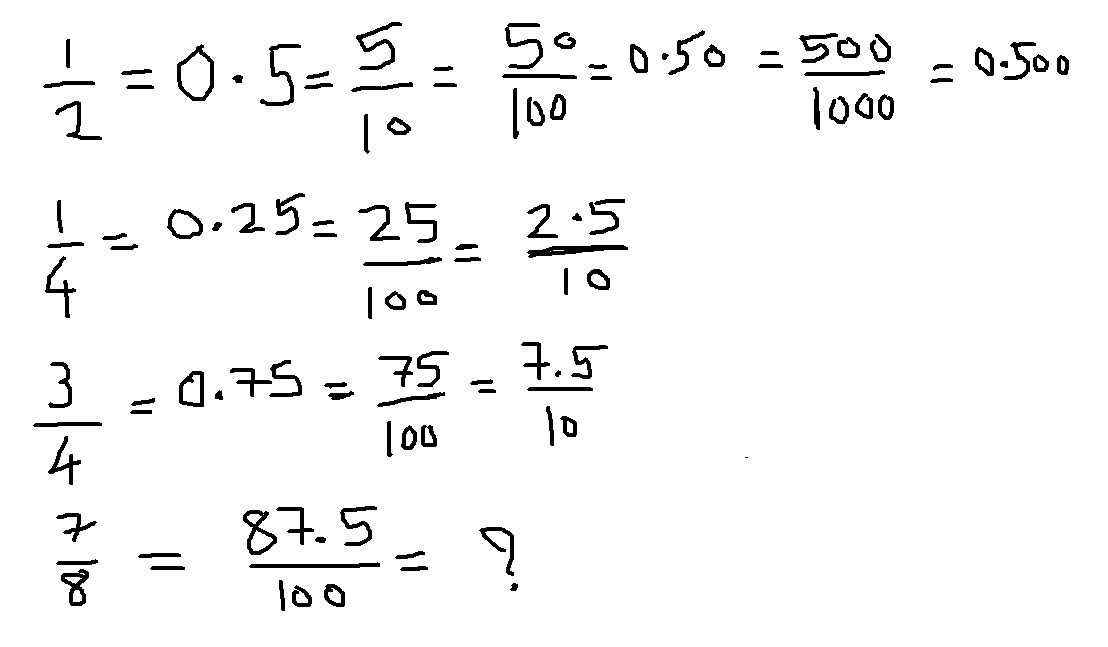 1/2 = 0.5 = 5/10 = 50/100 = 0.50 = 500/1000 = 0.500
1/4 = 0.25 = 25/100 = 2.5/10
3/4 = 0.75 = 75/100 = 7.5/10
7/8 = 87.5/100 = ?